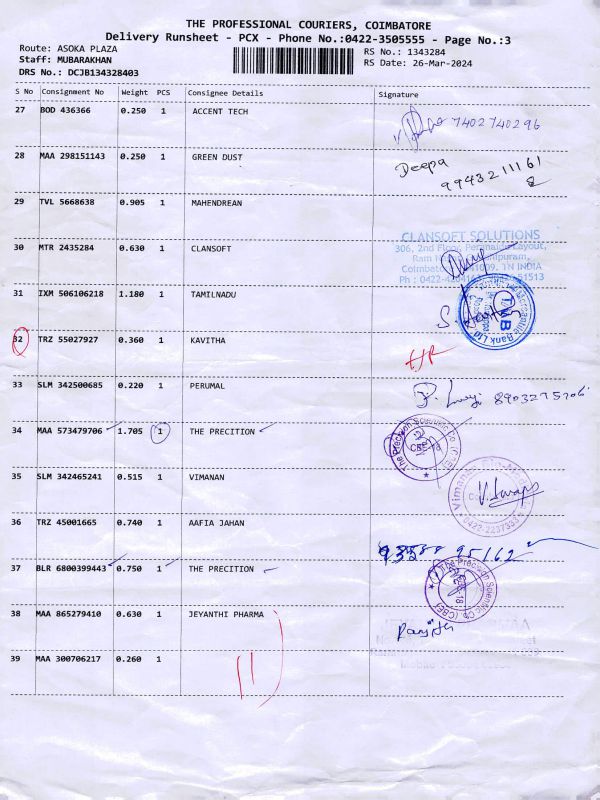 THE PROFESSIONAL COURIERS, COIMBATORE
Delivery Runsheet - PCX - Phone No.:0422-3505555 - Page No.:3
Route: ASOKA PLAZA
RS No.: 1343284
Staff: MUBARAKHAN
RS Date: 26-Mar-2024
DRS No.: DCJB134328403
S No Consignment No Weight PCS Consignee Details Signature
27 BOD 436366 0.250 1 ACCENT TECH
7402740296
28 MAA 298151143 0.250 1 GREEN DUST
Deepa
9943211161
29 TVL 5668638 0.905 1 MAHENDREAN
CLANSOFT SOLUTIONS
30 MTR 2435284 0.630 1 CLANSOFT
31 IXM 506106218 1.180 1 TAMILNADU
32 TRZ 55027927 0.360 1 KAVITHA
33 SLM 342500685 0.220 1 PERUMAL
34 MAA 573479706 1.705 1 THE PRECITION
The Precision Scientific Co. (CBE)
35 SLM 342465241 0.515 1 VIMANAN
0422-2237331
36 TRZ 45001665 0.740 1 AAFIA JAHAN
95162
37 BLR 6800399443 0.750 1 THE PRECITION
The Precision Scientific Co. (CBE)
38 MAA 865279410 0.630 1 JEYANTHI PHARMA
Ranjith
39 MAA 300706217 0.260 1